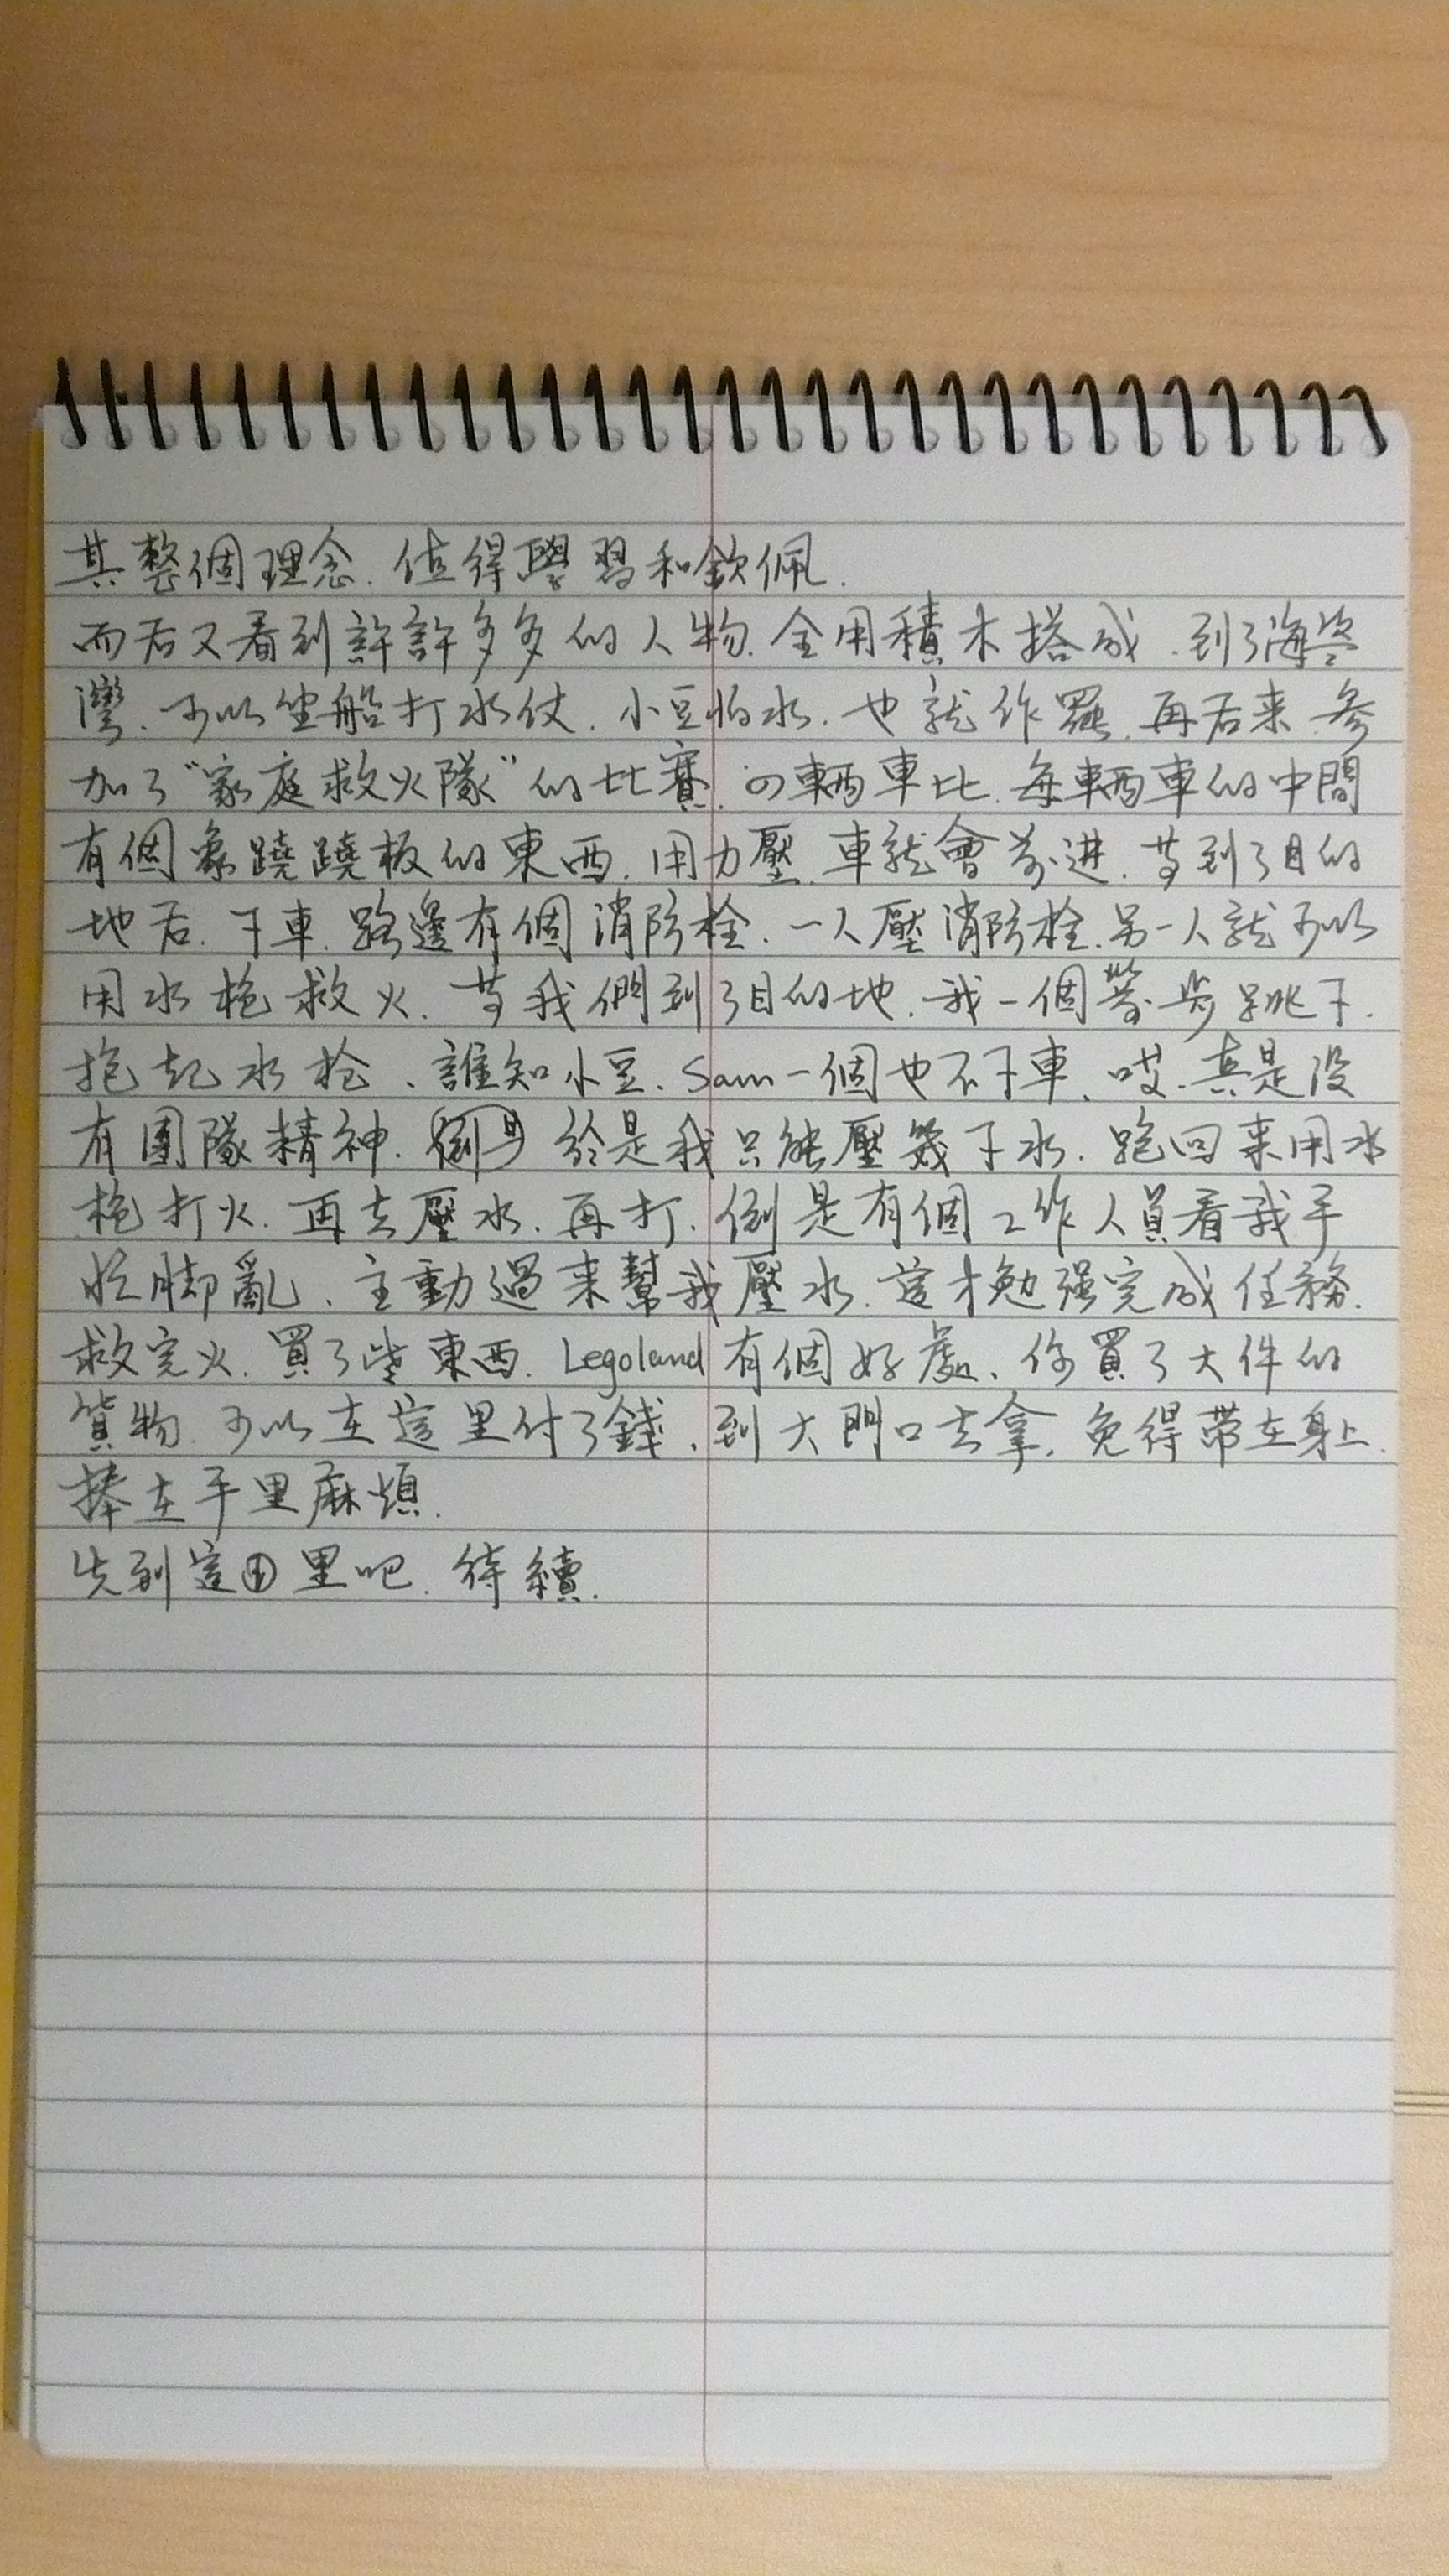 其整個理念.值得學習和欽佩.
而后又看到許許多多的人物.全用積木搭成.到了海盜
灣.可以坐船打水仗.小豆怕水.也就作罷.再后来.参
加了“家庭救火隊”的比賽.四輛車比.每輛車的中間
有個象蹺蹺板的東西.用力壓.車就會前进.等到了目的
地后.下車.路邊有個消防栓.一人壓消防栓.另一人就可以
用水枪救火.等我們到了目的地.我一個箭步跳下.
抱起水枪、誰知小豆、Sam一個也不下車、哎.真是没
有團隊精神.於是我只能壓幾下水.跑回来用水
枪打火.再去壓水.再打.倒是有個工作人員看我手
忙脚亂、主動過来幫我壓水.這才勉强完成任務.
救完火.買了些東西.Legoland有個好處、你買了大件的
貨物.可以在這里付了錢、到大門口去拿.免得带在身上.
捧在手里麻煩.
先到這里吧.待續.